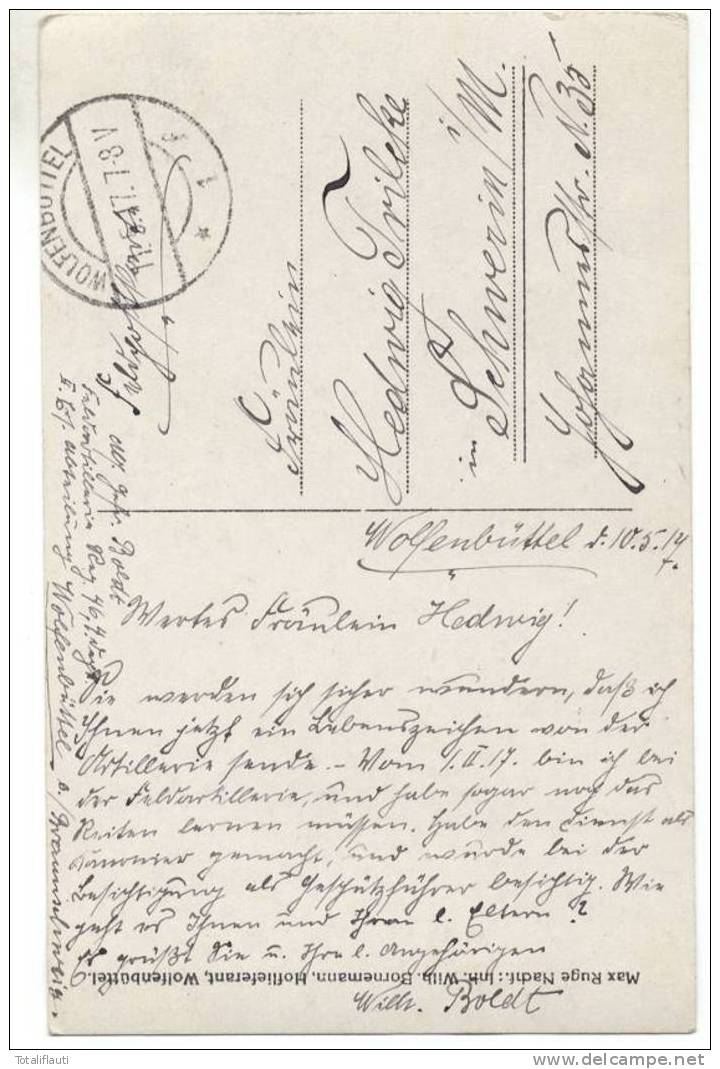 WOLFENBÜTTEL
8-9 V
Fräulein
Hedwig Trilcke
in Schwerin i/M.
Johannesstr. N. 35
Wolfenbüttel d. 10.5.17
Wertes Fräulein Hedwig!
Sie werden sich sicher wundern, daß ich
Ihnen jetzt ein Lebenszeichen von der
Artillerie sende. - Vom 1.II.17. bin ich bei
der Feldartillerie, und habe sogar noch das
Reiten lernen müssen. Habe den Dienst als
Kanonier gemacht, und wurde bei der
Besichtigung als Geschützführer besichtig. Wie
geht es Ihnen und Ihren l. Eltern?
Es grüßt Sie u. Ihre l. Angehörigen
Wilh. Boldt
Gefr. Boldt
Feldartillerie Reg. 46,
II. Abteilung Wolfenbüttel
b/Braunschweig.
Max Ruge Nachf.: Inh. Wilh. Bornemann, Hoflieferant, Wolfenbüttel.
Totaliflauti
www.delcampe.net